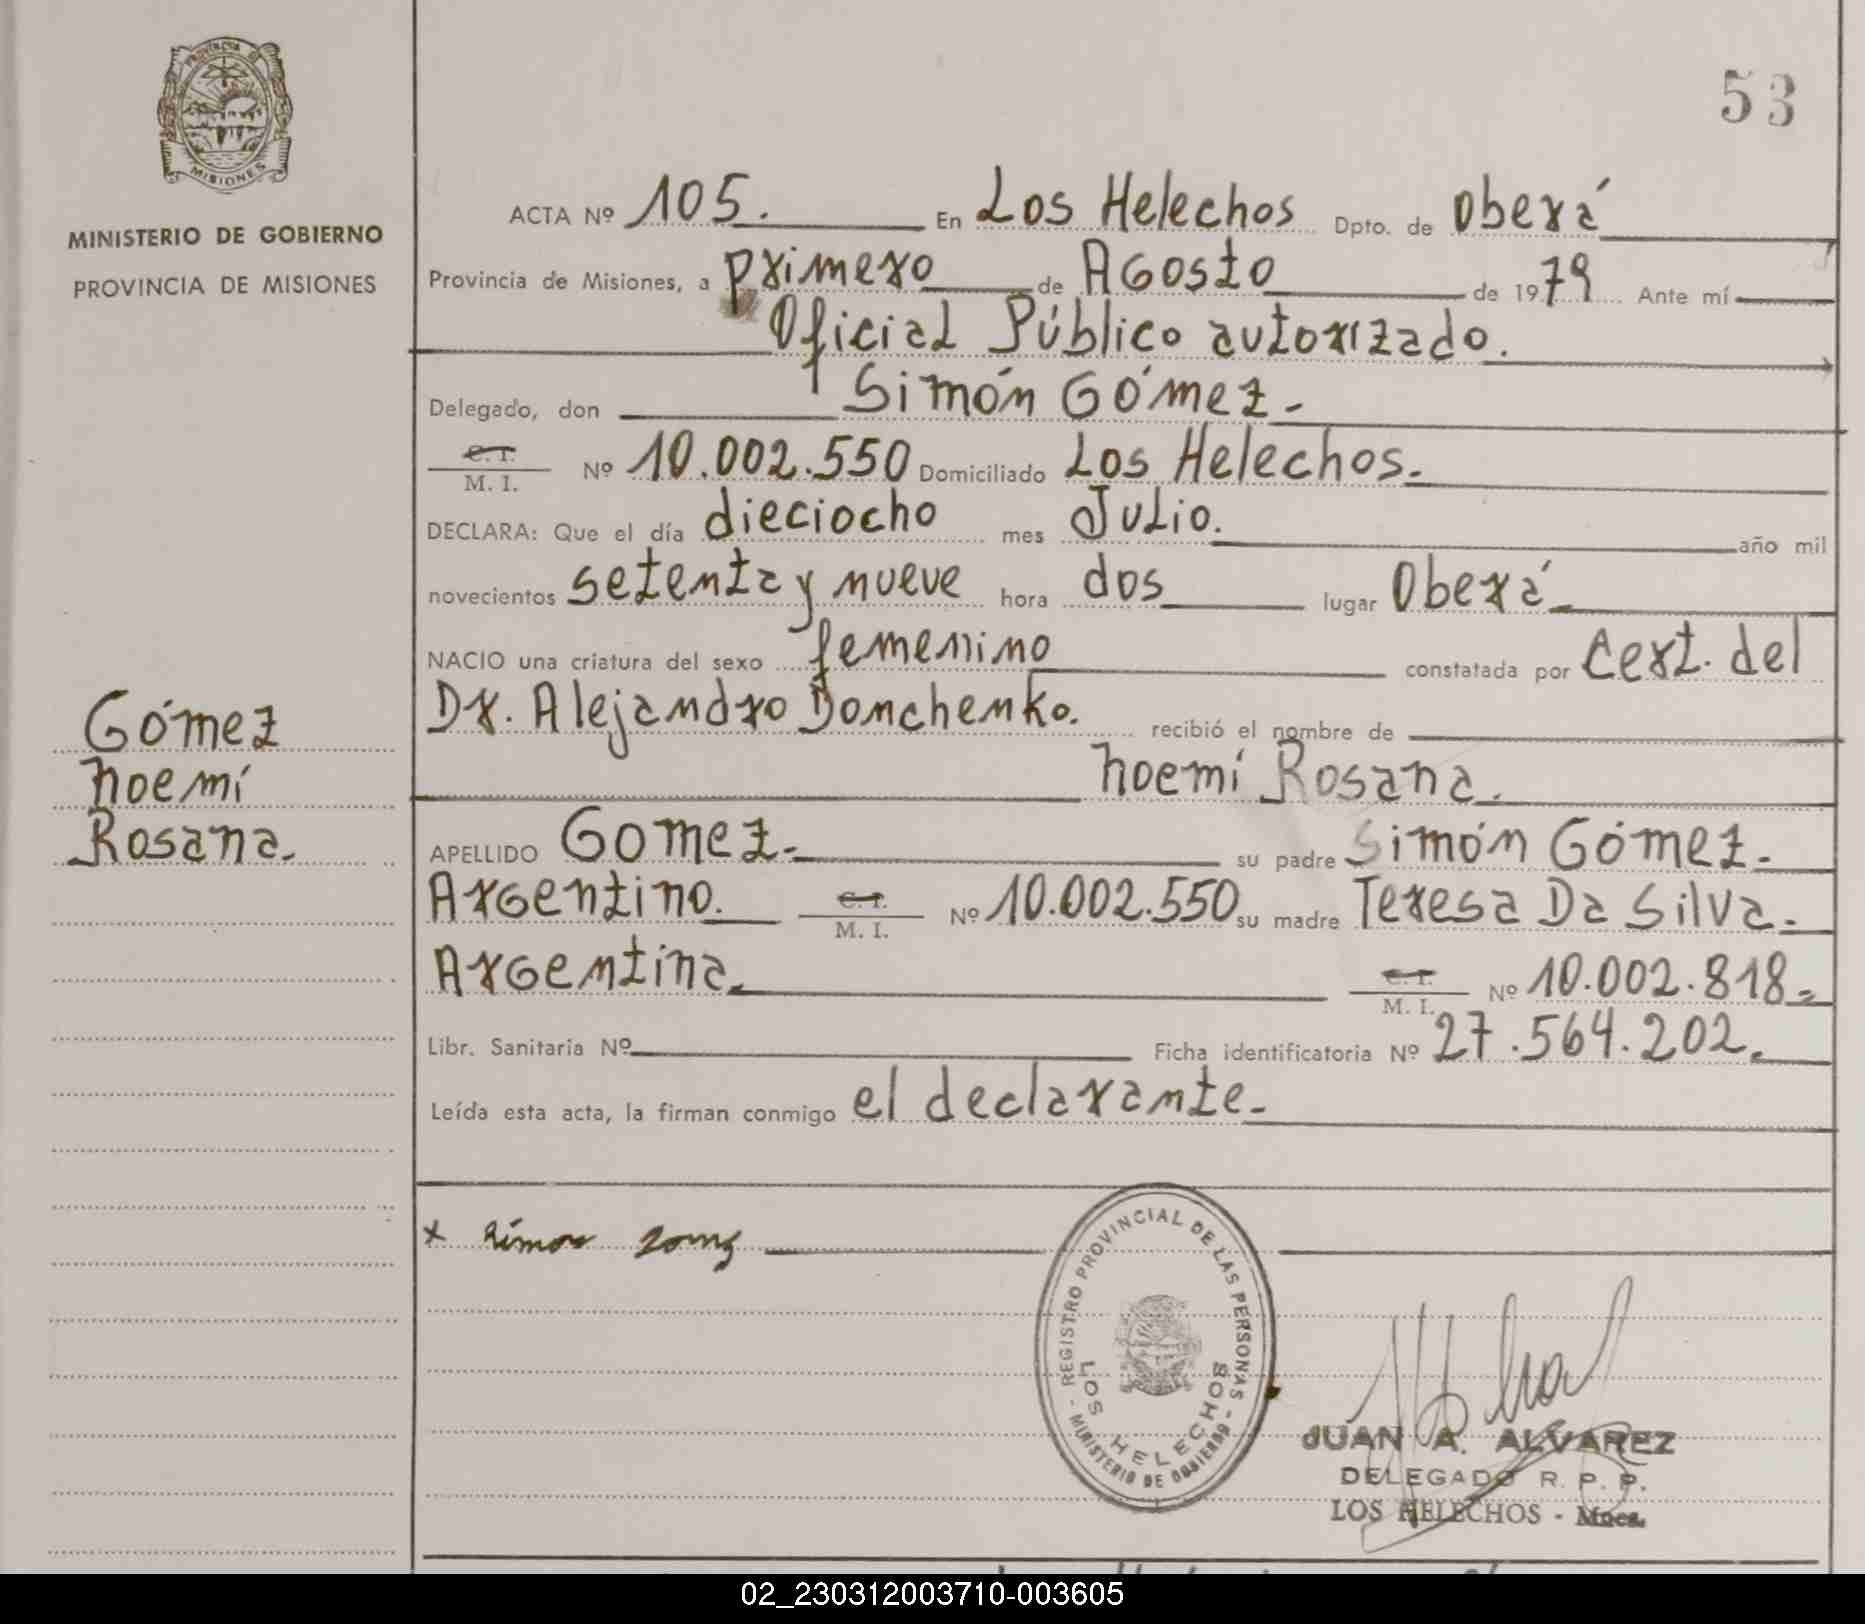 PROVINCIA DE
MISIONES
MINISTERIO DE GOBIERNO
PROVINCIA DE MISIONES
53
ACTA Nº 105. En Los Helechos Dpto. de Oberá
Provincia de Misiones, a primero de Agosto de 1979 Ante mí
Oficial Público autorizado.
Delegado, don Simón Gómez.
C. I. / M. I. Nº 10.002.550 Domiciliado Los Helechos.
DECLARA: Que el día dieciocho mes Julio. año mil
novecientos setenta y nueve hora dos lugar Oberá
NACIO una criatura del sexo femenino constatada por Cert. del
Dr. Alejandro Donchenko. recibió el nombre de
Noemí Rosana.
Gómez
Noemí
Rosana.
APELLIDO Gomez. su padre Simón Gómez.
Argentino. C. I. / M. I. Nº 10.002.550 su madre Teresa Da Silva.
Argentina. C. I. / M. I. Nº 10.002.818
Libr. Sanitaria Nº Ficha identificatoria Nº 27.564.202.
Leída esta acta, la firman conmigo el declarante.
x Simon
REGISTRO PROVINCIAL DE LAS PERSONAS - MINISTERIO DE GOBIERNO -
LOS HELECHOS
JUAN A. ALVAREZ
DELEGADO R. P. P.
LOS HELECHOS - Mnes.
02_230312003710-003605